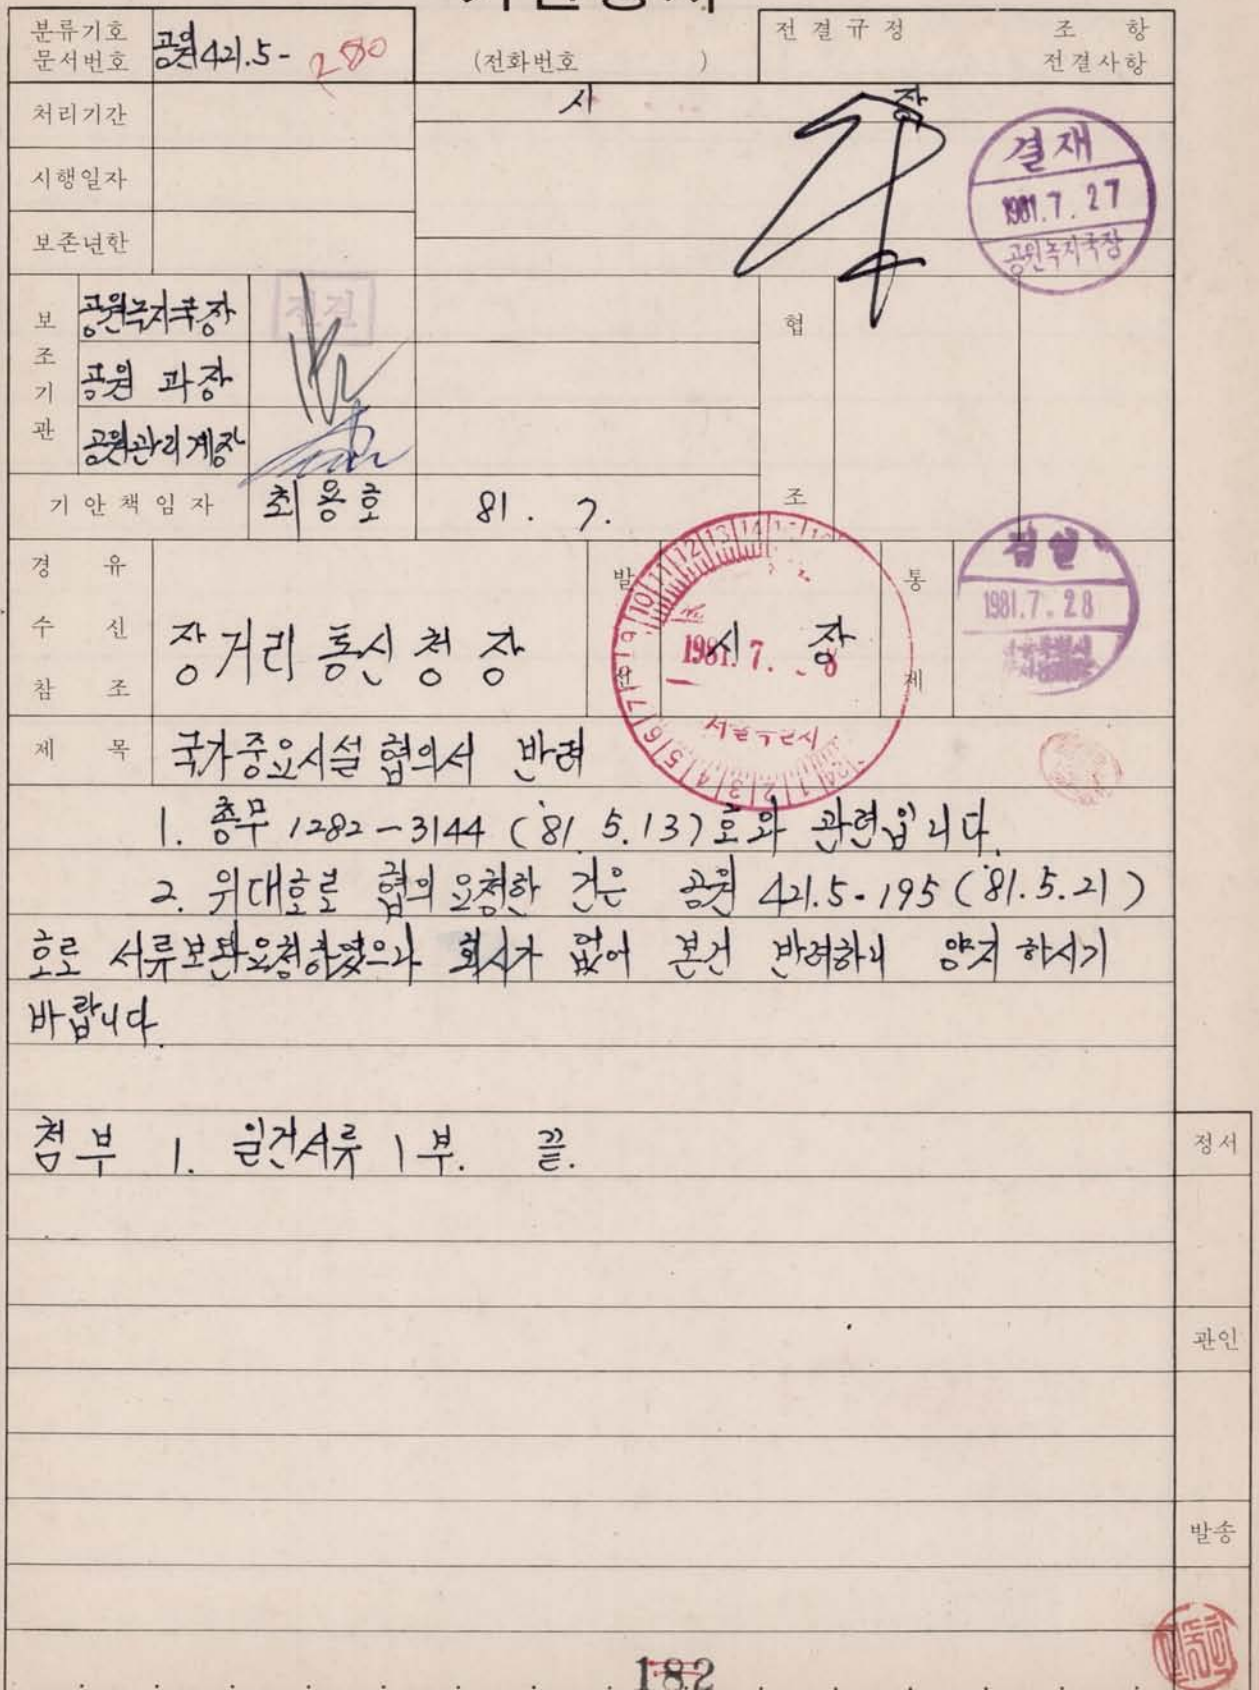 분류기호
문서번호 공원421.5- 280
(전화번호 )
전결규정 조 항
전결사항
처리기간
시 장
시행일자
보존년한
결재
1981.7.27
공원녹지국장
보조기관
공원녹지국장
전결
공원 과장
공원관리계장
협조
기안책임자 최용호 81. 7.
경유
수신 장거리 통신청장
참조
발신 시 장
통제
1981. 7.
서울특별시
검인
1981.7.28
제목 국가중요시설 협의서 반려
1. 총무 1282-3144 ('81. 5.13)호와 관련입니다.
2. 위대호로 협의요청한 건은 공원 421.5-195 ('81.5.21)
호로 서류보완요청하였으나 회시가 없어 본건 반려하니 양지 하시기
바랍니다.
첨부 1. 일건서류 1부. 끝.
정서
관인
발송
182